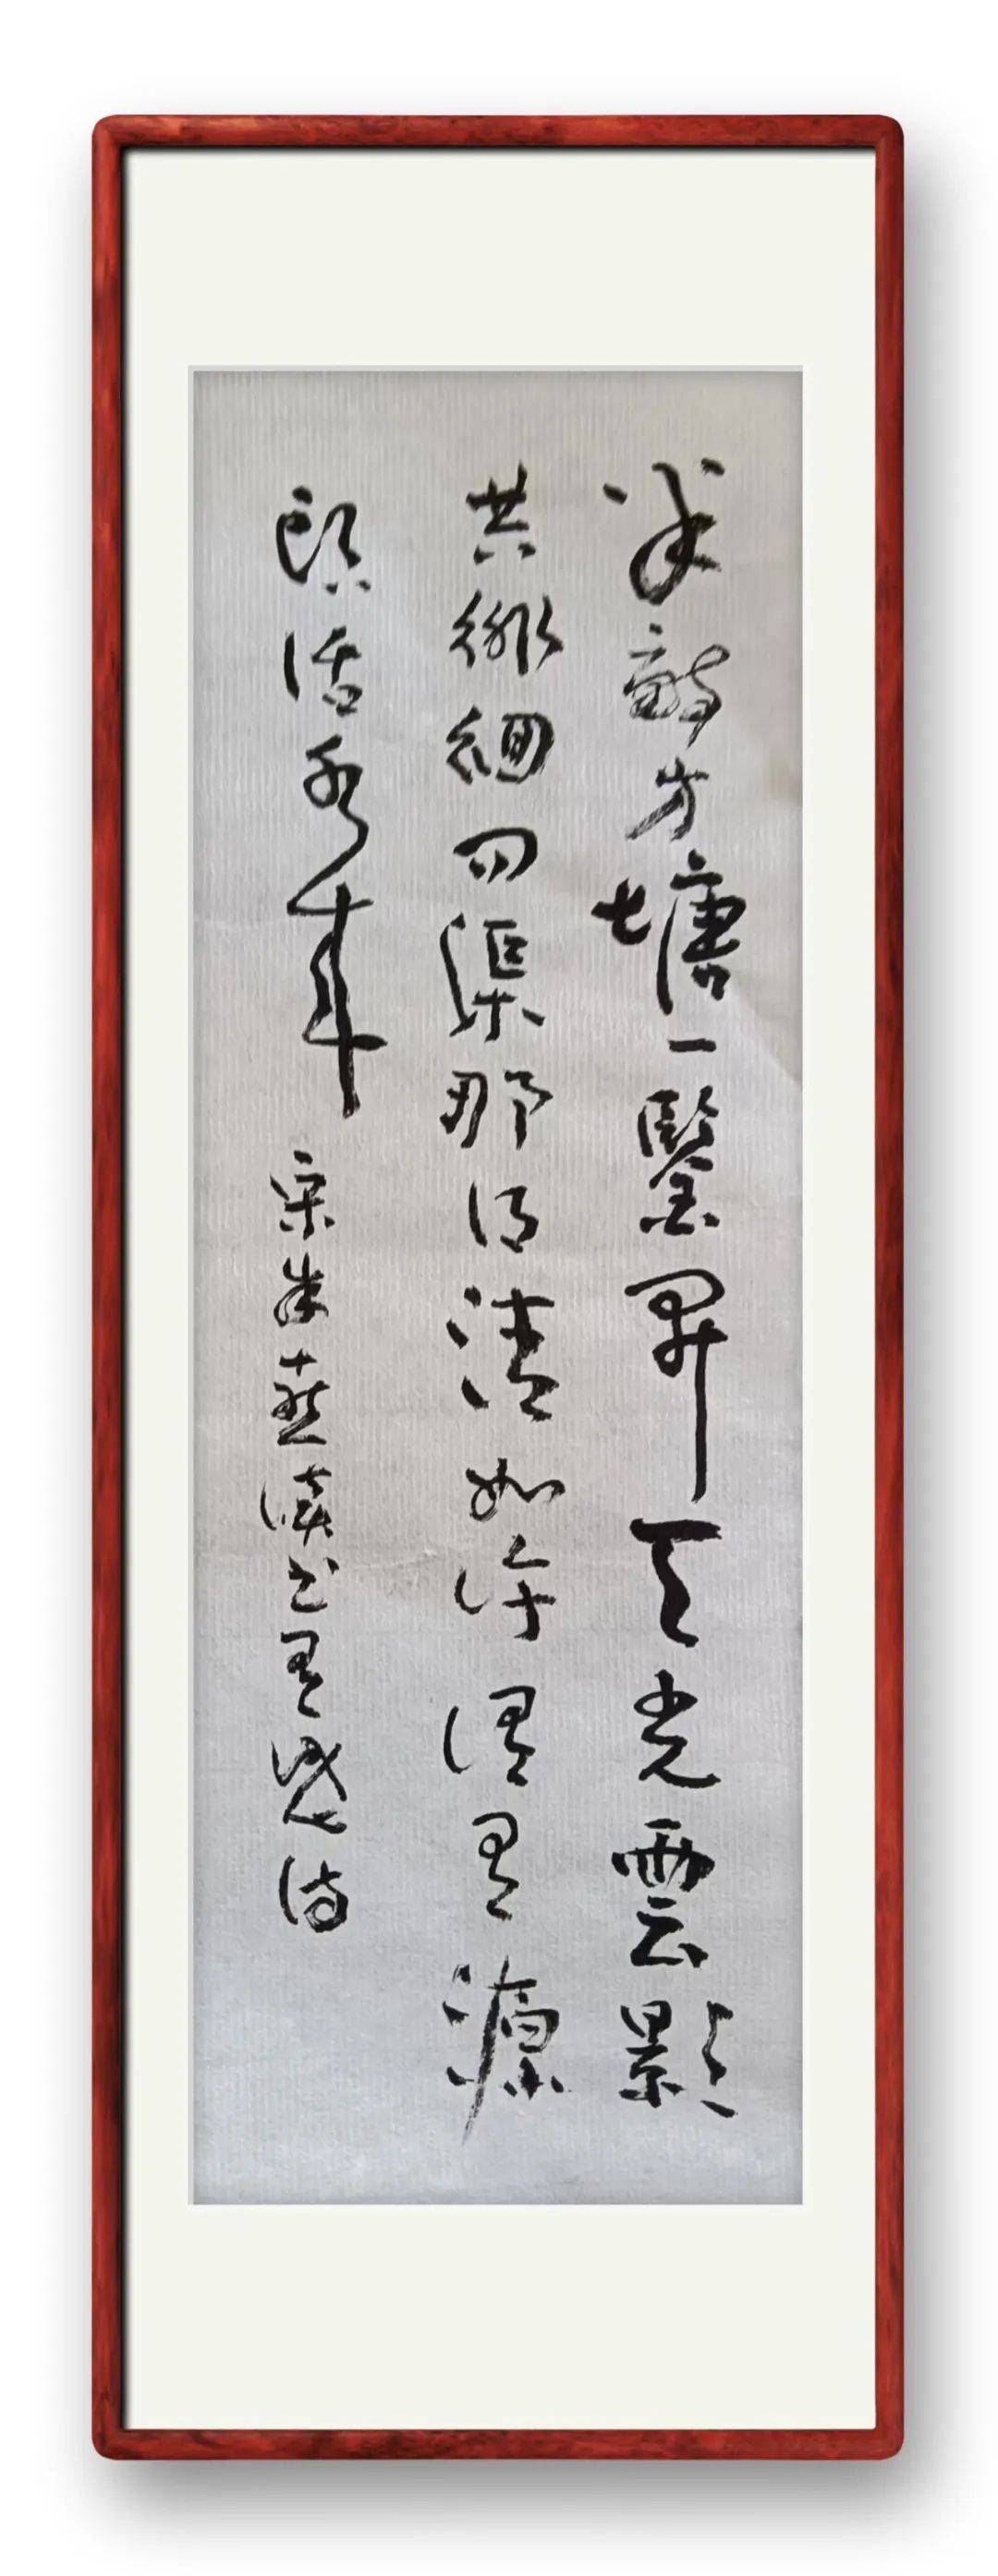 半畝方塘一鑒開天光雲影
共徘徊問渠那得清如許謂有源
頭活水來 宋朱熹讀書有感詩